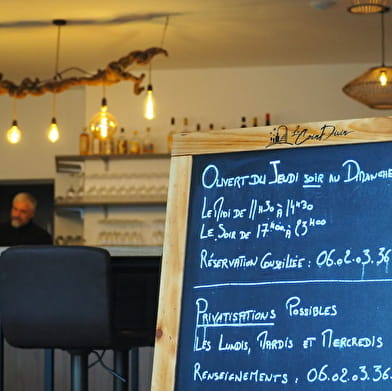 Le Coin Divin
Ouvert du Jeudi soir au Dimanche
Le Midi de 11h30 à 14h30
Le Soir de 17h00 à 23h00
Réservation Conseillée : 06.02.03.36
Privatisations Possibles
Les Lundis, Mardis et Mercredis
Renseignements : 06.02.03.36